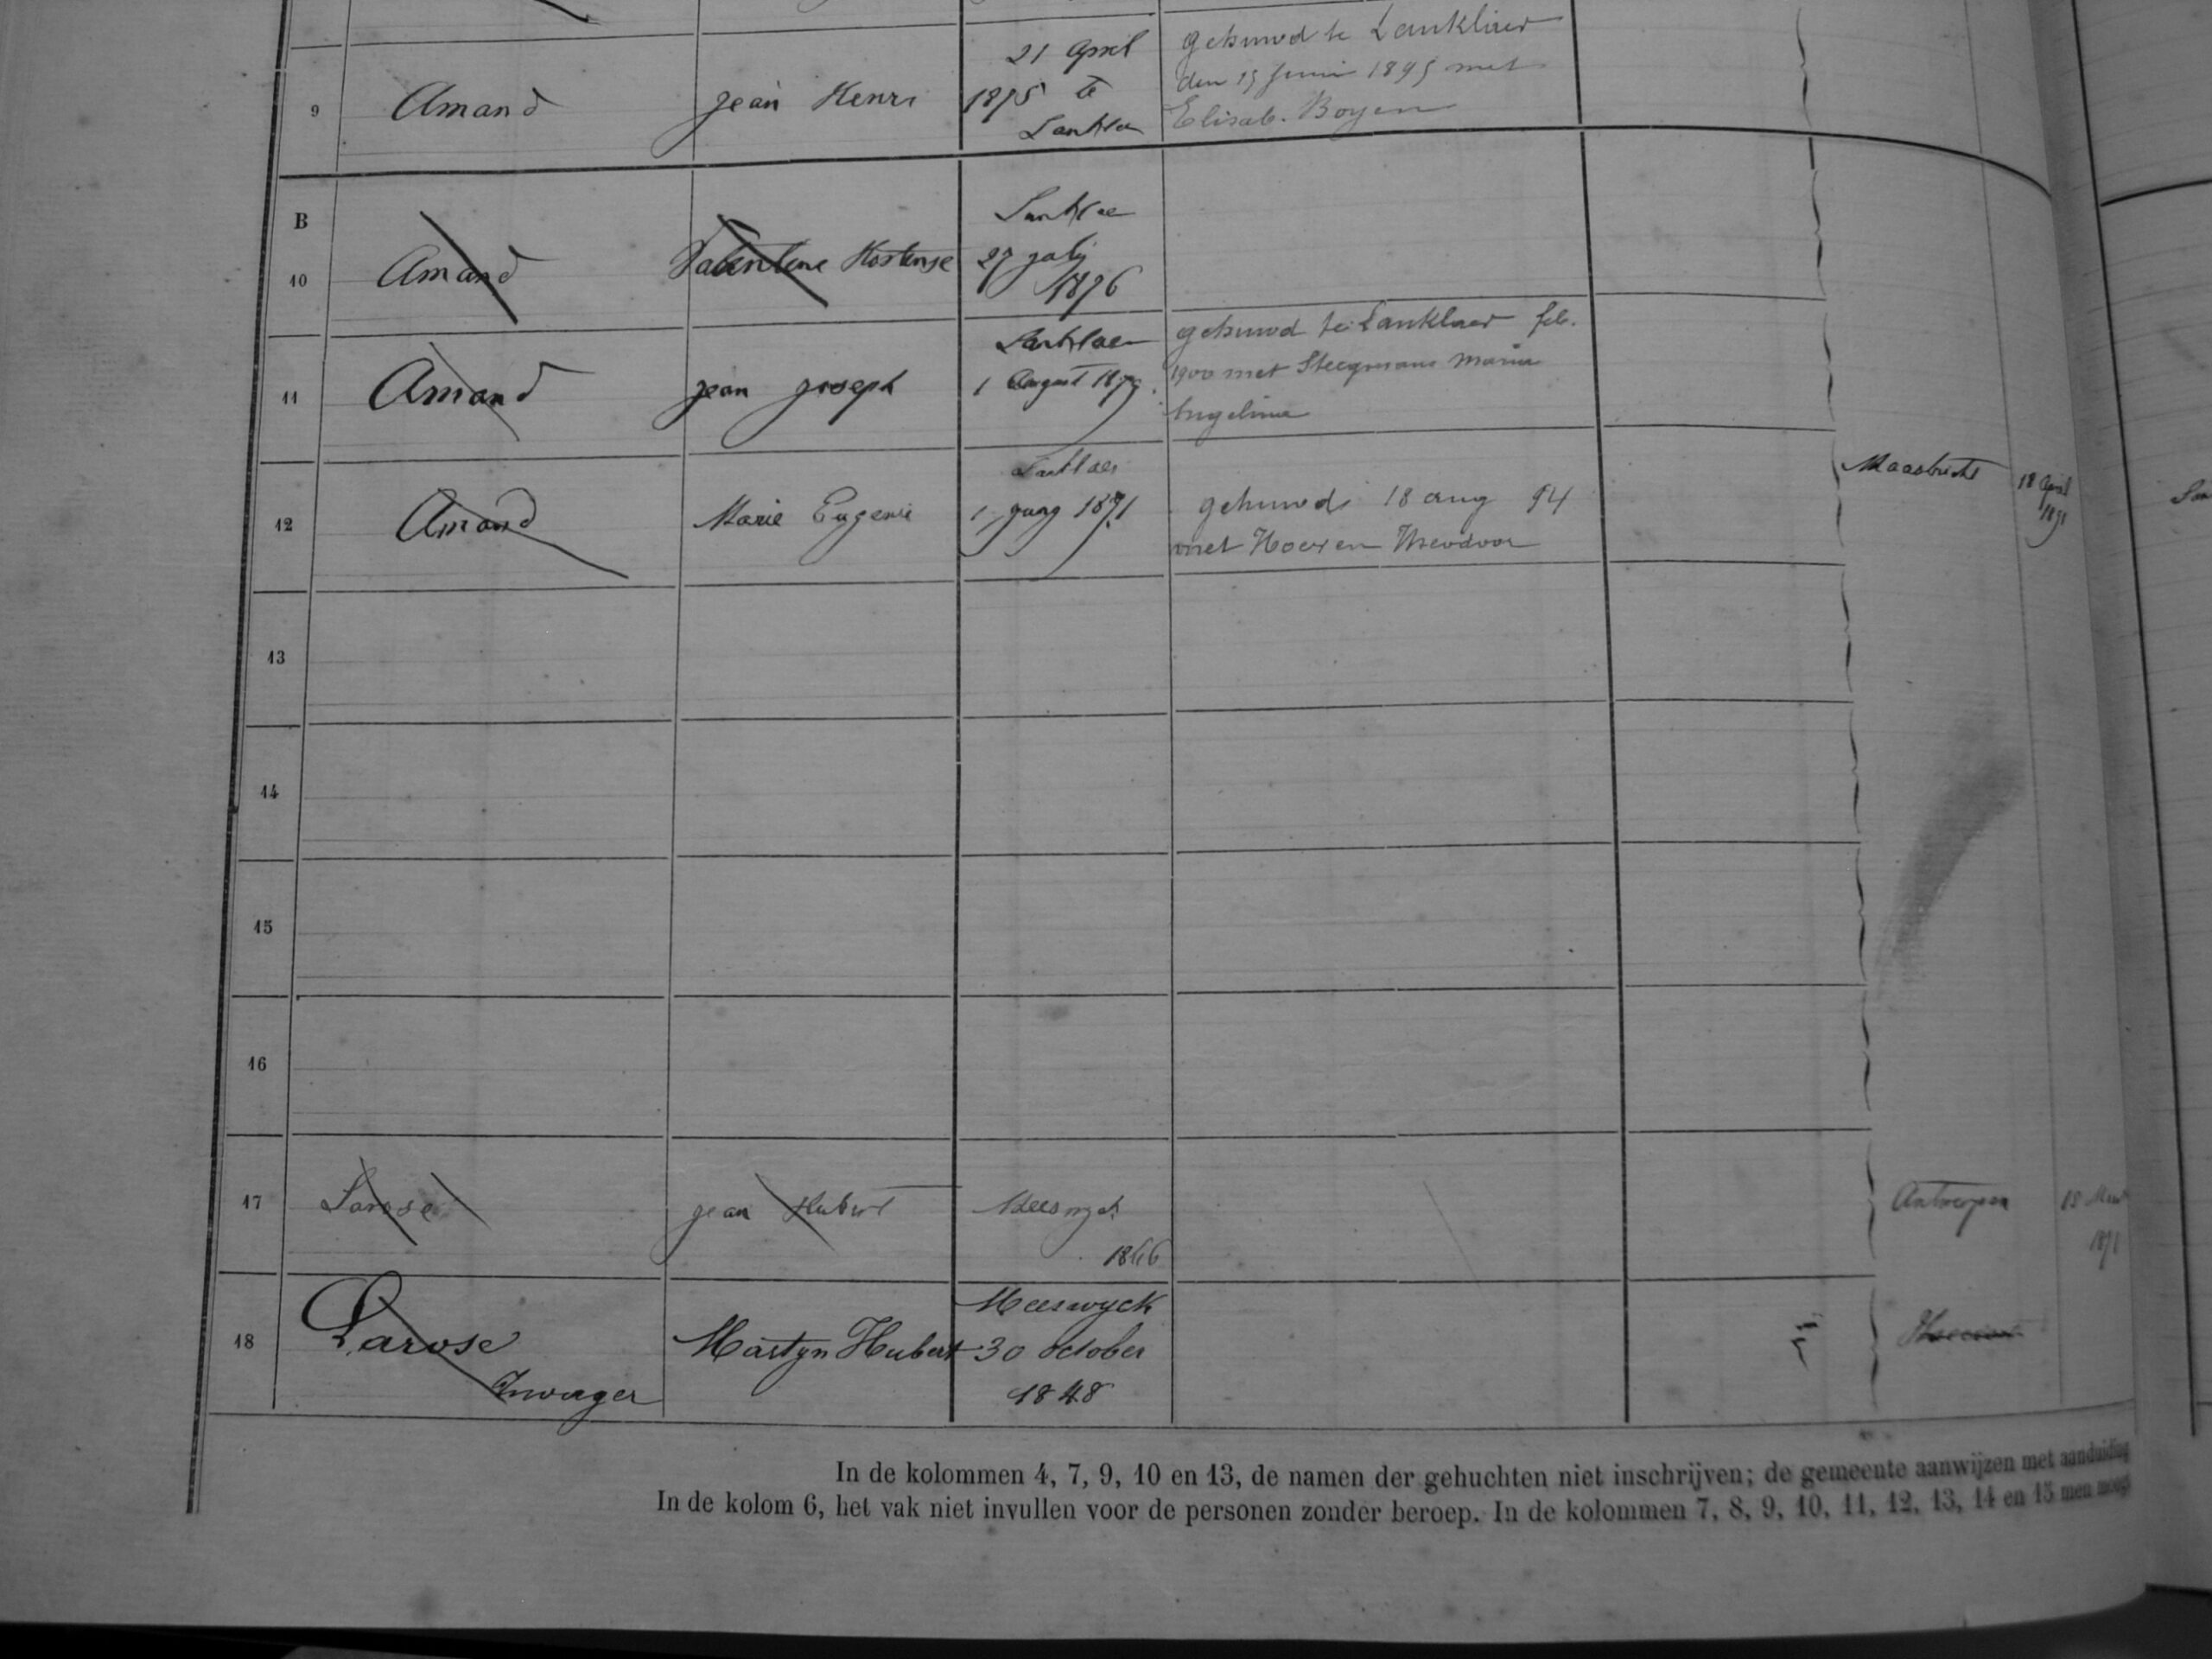 21 April gehuwd te Lanklaer
9 Amand jean Henri 1875 te den 15 Juni 1895 met
Lankla Elisab. Boyen
B Lanklae
10 Amand Valentine Hortense 27 july
1876
Lanklaer gehuwd te Lanklaer feb.
11 Amand jean joseph 1 August 1879 1900 met Steegmans Maria
Angelina
Lanklaer Maastricht 18 April
12 Amand Marie Eugenie 1 juny 1871 gehuwd 18 aug 94 1891
met Hoeven Theodoor
13
14
15
16
17 Larose jean Hubert Antwerpen
Meeswyck
18 Larose Martyn Hubert 30 october
Zwager 1848
In de kolommen 4, 7, 9, 10 en 13, de namen der gehuchten niet inschrijven; de gemeente aanwijzen met aanduiding
In de kolom 6, het vak niet invullen voor de personen zonder beroep. In de kolommen 7, 8, 9, 10, 11, 12, 13, 14 en 15 men moet